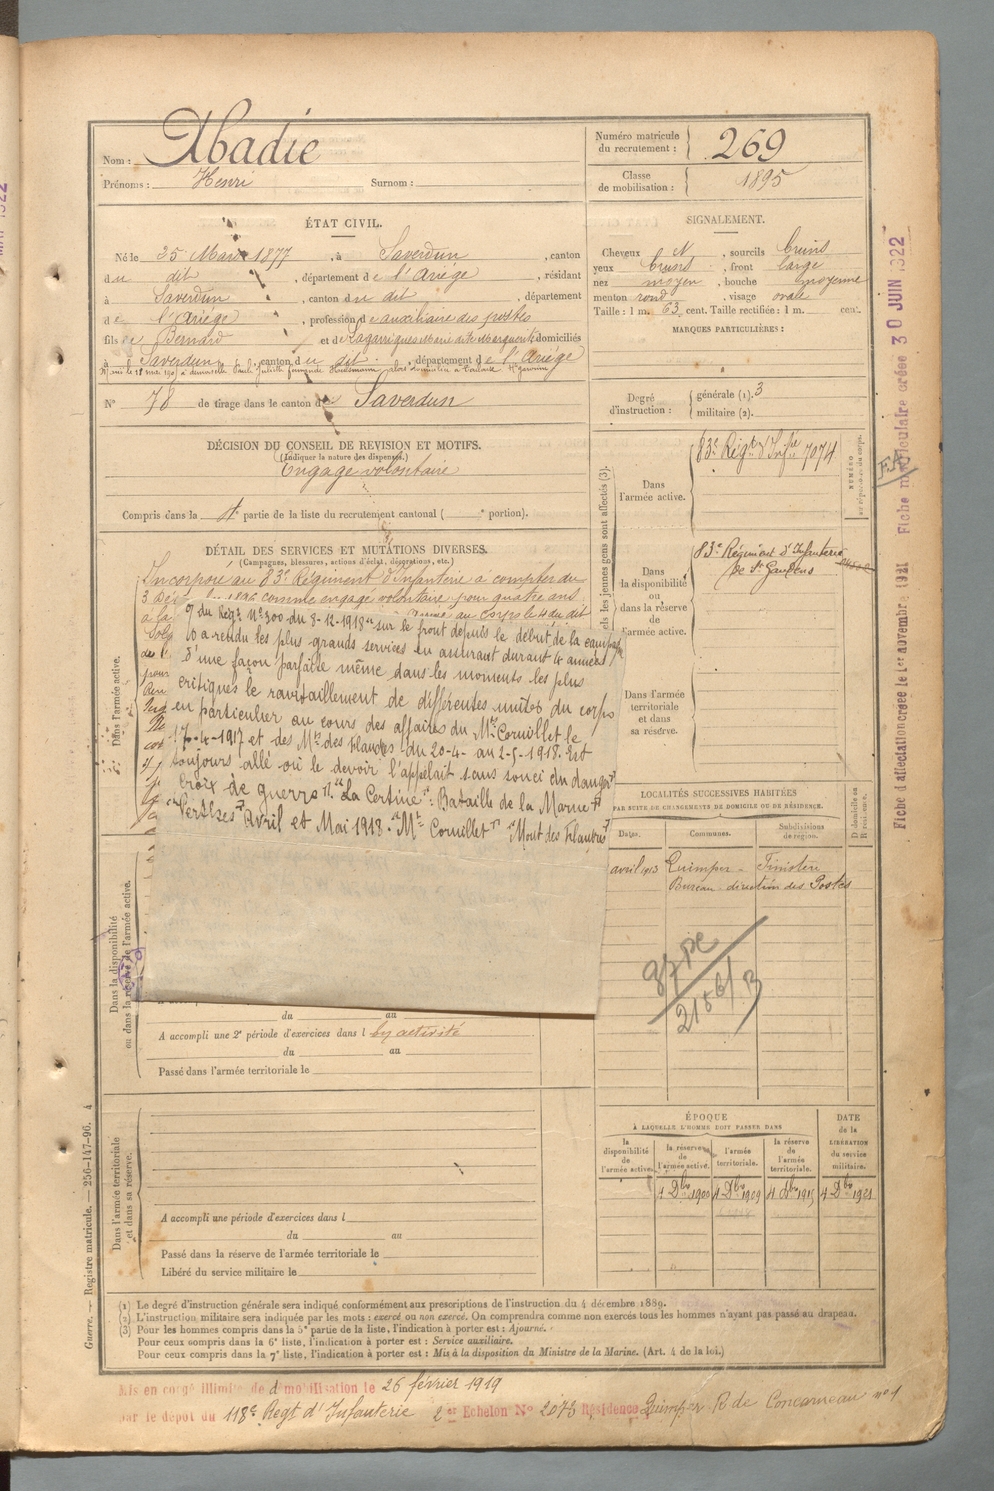 Nom : Abadie
Prénoms : Henri Surnom :
Numéro matricule
du recrutement : 269
Classe
de mobilisation : 1895
ÉTAT CIVIL.
Né le 25 Mars 1877, à Saverdun, canton
du dit, département de l'Ariège, résidant
à Saverdun, canton du dit, département
de l'Ariège, profession d'auxiliaire des postes
fils de Bernard et de Lagarrigues Marie dite Marguerite domiciliés
à Saverdun, canton du dit, département de l'Ariège
N° 78 de tirage dans le canton de Saverdun
SIGNALEMENT.
Cheveux N, sourcils bruns
yeux bruns, front large
nez moyen, bouche moyenne
menton rond, visage ovale
Taille : 1 m. 63 cent. Taille rectifiée : 1 m. cent.
MARQUES PARTICULIÈRES :
Degré
d'instruction :
générale (1). 3
militaire (2).
DÉCISION DU CONSEIL DE REVISION ET MOTIFS.
(Indiquer la nature des dispenses.)
Engagé volontaire
Compris dans la 4e partie de la liste du recrutement cantonal ( e portion).
DÉTAIL DES SERVICES ET MUTATIONS DIVERSES.
(Campagnes, blessures, actions d'éclat, décorations, etc.)
Incorporé au 83e Régiment d'Infanterie à compter du
comme engagé volontaire pour quatre ans
au corps le 4 du dit
du Régt N° 300 du 8-12-1918 "sur le front depuis le début de la campagne
a rendu les plus grands services en assurant durant 4 années
d'une façon parfaite même dans les moments les plus
critiques le ravitaillement de différentes unités du corps
en particulier au cours des affaires du Mt Cornillet le
17-4-1917 et des Mts des Flandres du 20-4- au 2-5-1918. Est
toujours allé où le devoir l'appelait sans souci du danger"
Croix de guerre". "La Certine": Bataille de la Marne"
"Perthes" Avril et Mai 1918. "Mt Cornillet" "Mont des Flandres"
Dans l'armée active.
Dans la disponibilité
ou dans la réserve de l'armée active.
du au
A accompli une 2e période d'exercices dans l by activité
du au
Passé dans l'armée territoriale le
Dans l'armée territoriale
et dans sa réserve.
A accompli une période d'exercices dans l
du au
Passé dans la réserve de l'armée territoriale le
Libéré du service militaire le
les jeunes gens sont affectés (3).
Dans
l'armée active.
83e Régt d'Infrie 7074
NUMÉRO
au répertoire du corps.
Dans
la disponibilité
ou
dans la réserve
de
l'armée active.
83e Régiment d'Infanterie
de St Gaudens
Dans l'armée
territoriale
et dans
sa réserve.
LOCALITÉS SUCCESSIVES HABITÉES
PAR SUITE DE CHANGEMENTS DE DOMICILE OU DE RÉSIDENCE.
Dates. Communes. Subdivisions
de région.
D domicile ou
R résidence.
avril 1913 Quimper - Finistère
Bureau - direction des Postes
ÉPOQUE
À LAQUELLE L'HOMME DOIT PASSER DANS
la
disponibilité
de
l'armée active.
la réserve
de
l'armée active.
l'armée
territoriale.
la réserve
de
l'armée
territoriale.
DATE
de la
LIBÉRATION
du service
militaire.
4 Dbre 1900 4 Dbre 1909 4 Dbre 1915 4 Dbre 1921
(1) Le degré d'instruction générale sera indiqué conformément aux prescriptions de l'instruction du 4 décembre 1889.
(2) L'instruction militaire sera indiquée par les mots : exercé ou non exercé. On comprendra comme non exercés tous les hommes n'ayant pas passé au drapeau.
(3) Pour les hommes compris dans la 5e partie de la liste, l'indication à porter est : Ajourné.
Pour ceux compris dans la 6e liste, l'indication à porter est : Service auxiliaire.
Pour ceux compris dans la 7e liste, l'indication à porter est : Mis à la disposition du Ministre de la Marine. (Art. 4 de la loi.)
Mis en congé illimité de démobilisation le 26 février 1919
par le dépôt du 118e Regt d'Infanterie 2er Echelon N° 2073 Résidence Quimper R de Concarneau n° 1
Guerre. — Registre matricule. — 256-147-96. 4
Fiche d'affectation créée le 1er novembre 1921
Fiche matriculaire créée 30 JUIN 1922